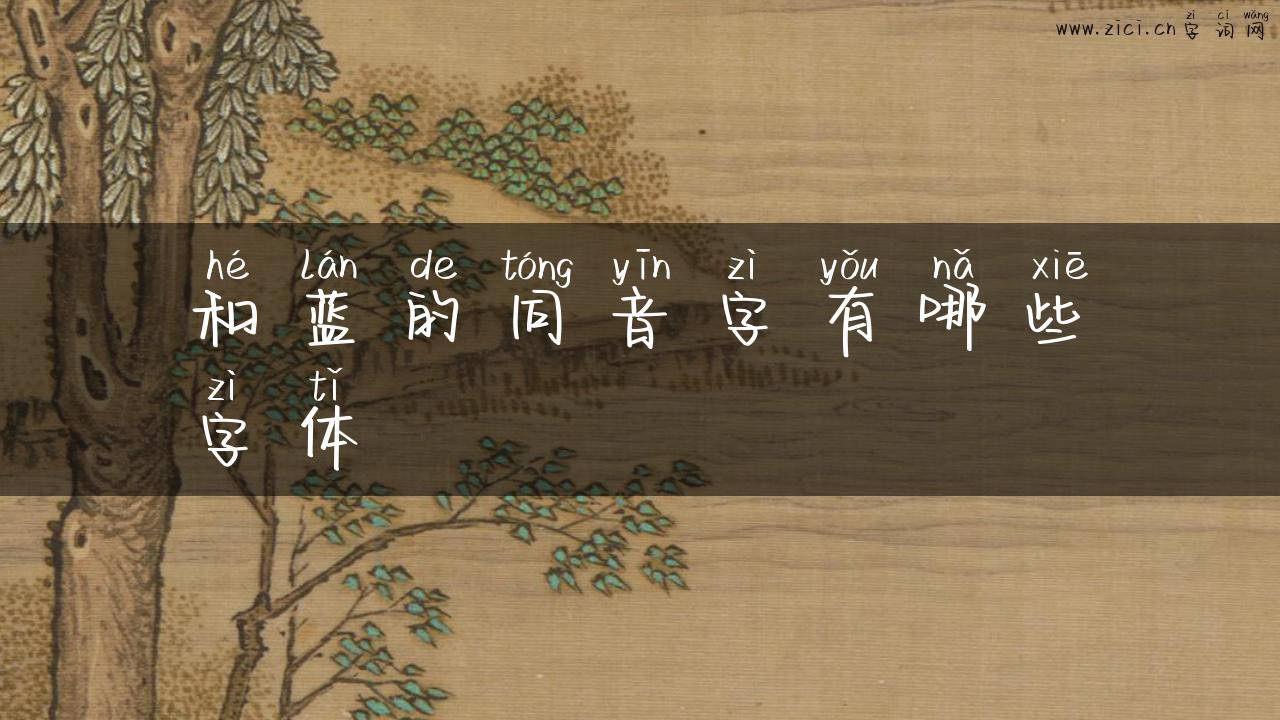 zì cí wǎng
www.zici.cn 字词网
hé lán de tóng yīn zì yǒu nǎ xiē
和蓝的同音字有哪些
zì tǐ
字体